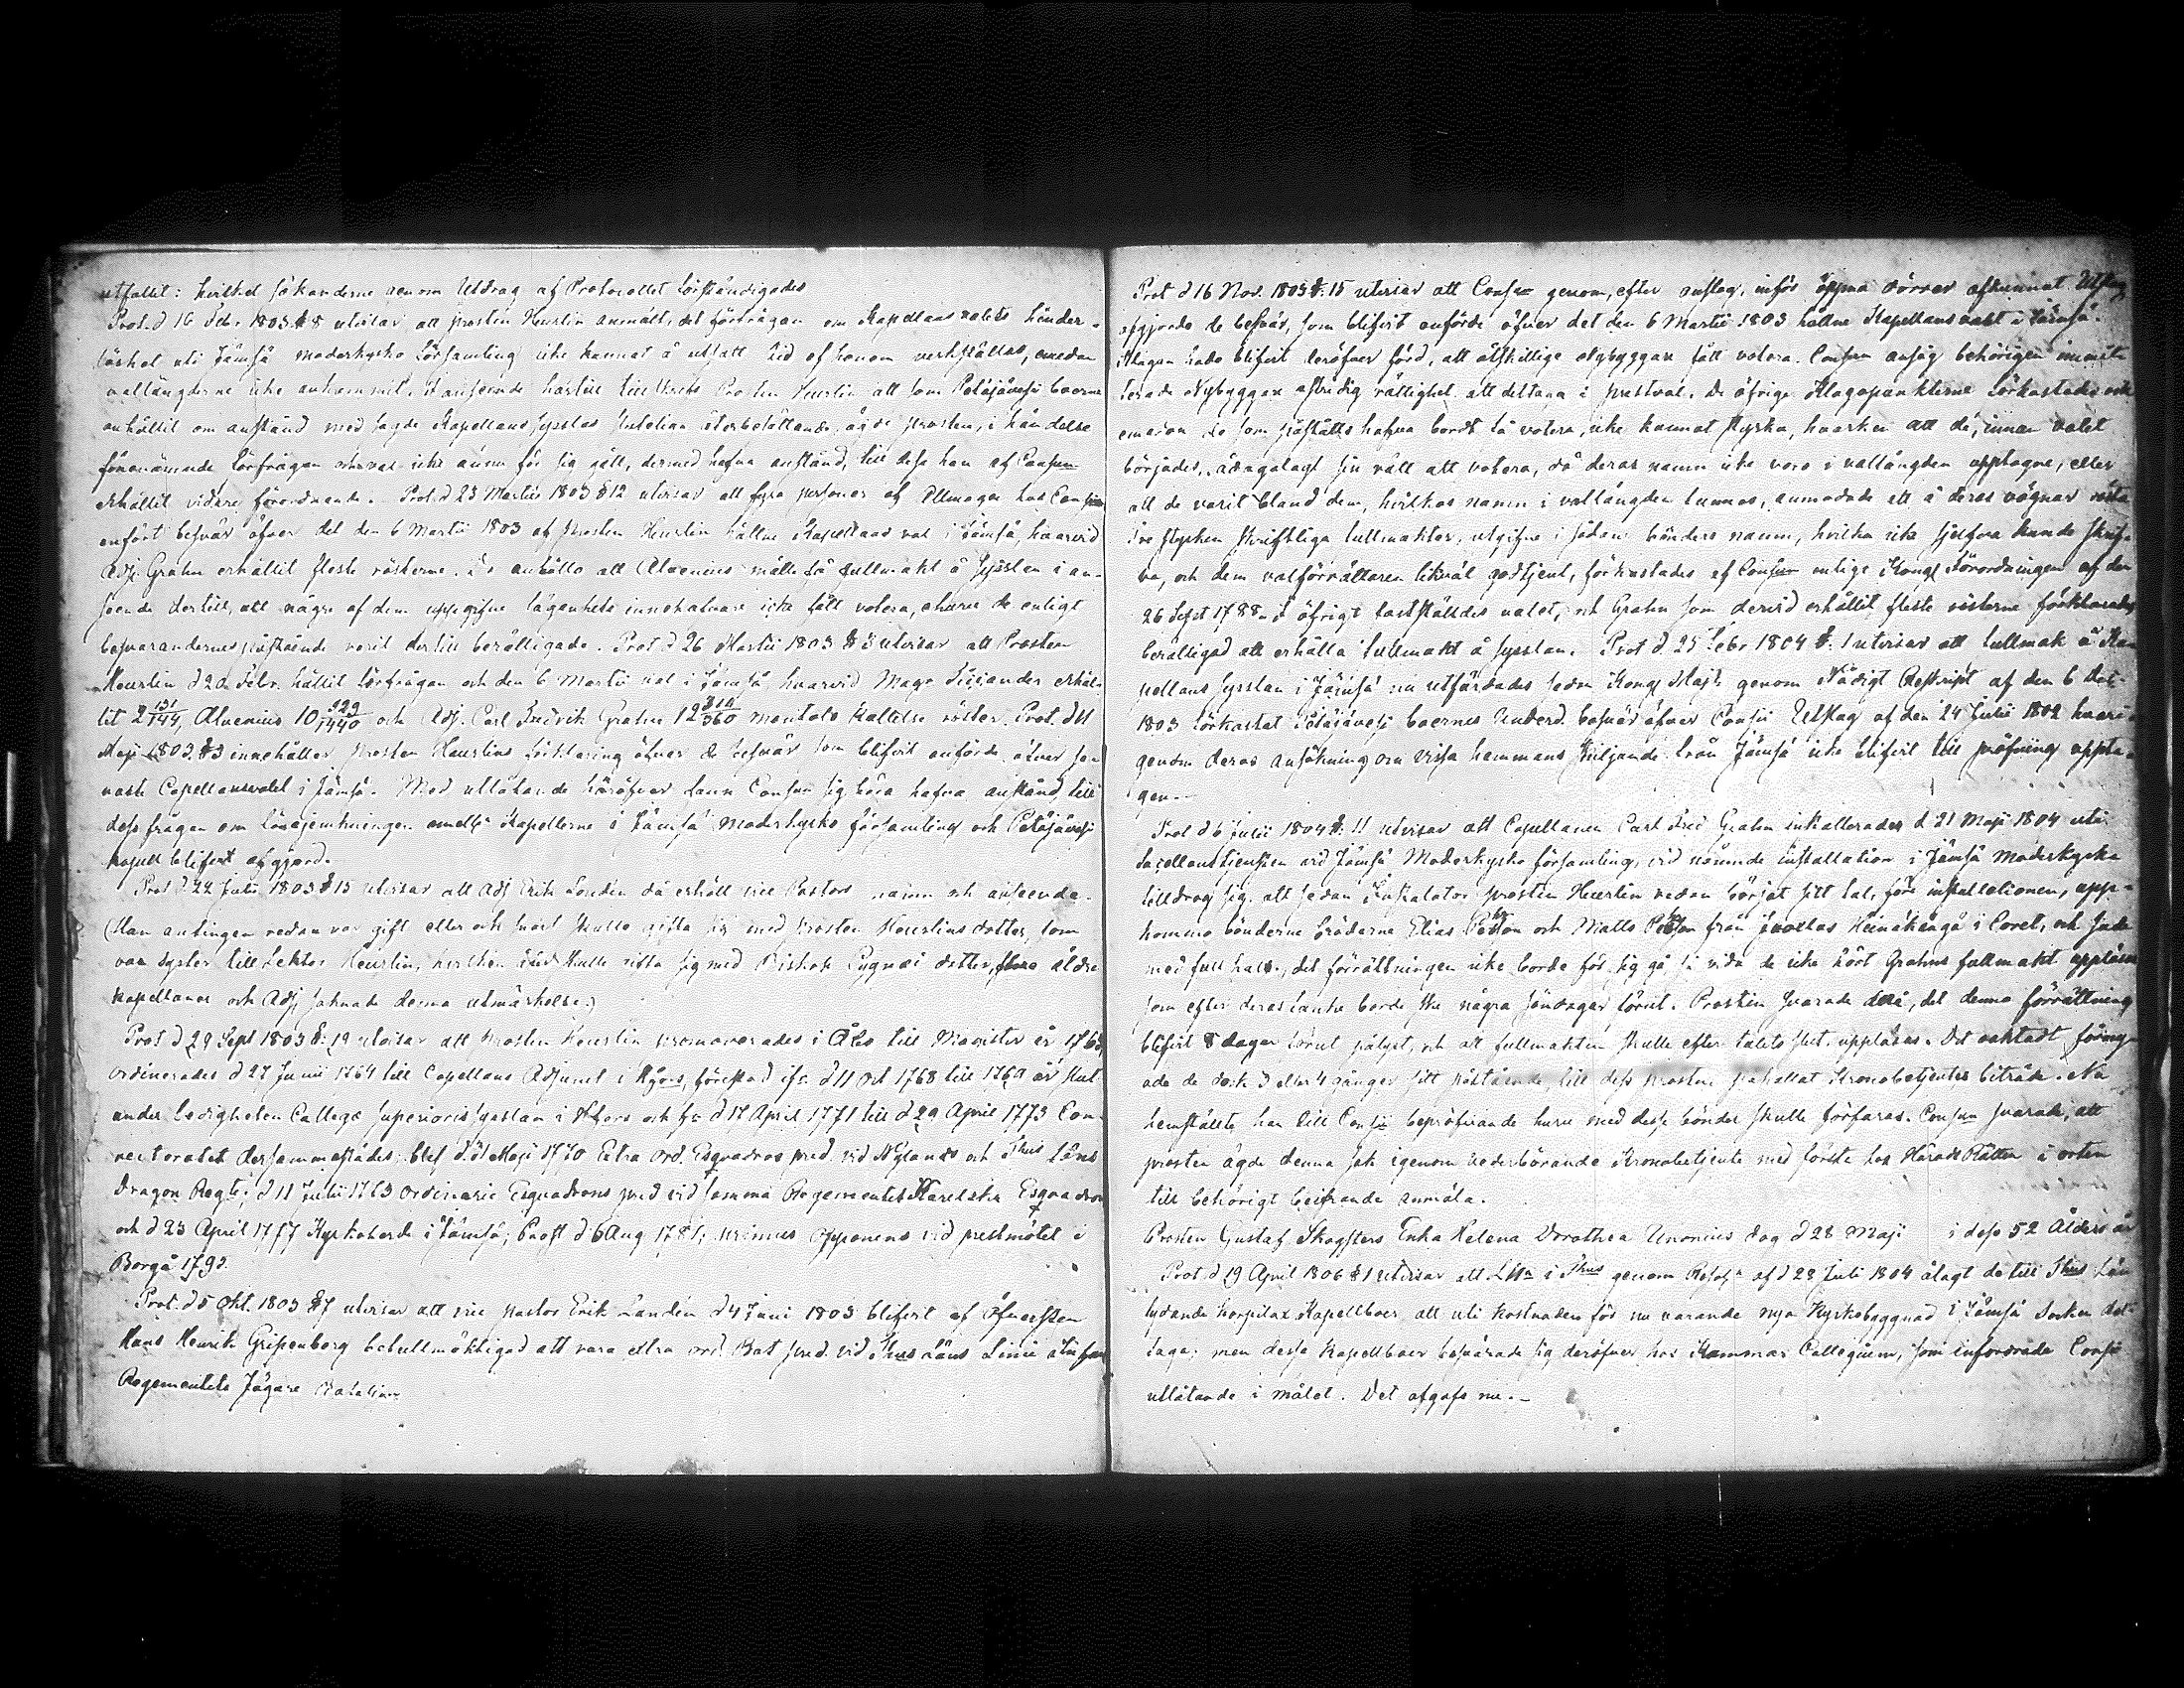 utfallit: hvilket sökanderne genom Utdrag af Protocollet förständigades
Prot. d 16 Febr 1803 § 8 utvisar att prosten Heurlin anmält, det förfrågan om Kapellans valets hinder-
löshet uti Jämsä moderkyrko församling icke kunnat å utsatt tid af honom verkställas, emedan
vallängderne icke ankommit. I anseende härtill tillstyrkte Prosten Heurlin att som Petäjävesi boerne
anhållit om anstånd med sagde Kapellans sysslas återbesättande, ägde prosten, i händelse
förenämnde förfrågan icke ännu för sig gått, dermed hafva anstånd, till dess han af Consm
erhållit vidare förordnande. Prot. d 23 Martii 1803 § 12 utvisar att fyra personer af Allmogen hos Consm
anfört besvär öfver det den 6 Martii 1803 af prosten Heurlin hållne Kapellans val i Jämsä, hvarvid
Adj. Grahn erhållit flesta rösterne. De anhålla att Alvenius måtte få fullmakt å sysslan i an-
seende dertill, att någre af dem uppgifne lägenhets innehafvare icke fått votera, ehuru de enligt
besvärandernes påstående varit dertill berättigade. Prot. d 26 Martii 1803 § 3 utvisar att Prosten
Heurlin d 20 Febr. hållit förfrågan och den 6 Martii val i Jämsä, hvarvid Mag. Ticcander erhål-
lit 2 131/144, Alvenius 10 929/1440 och Adj. Carl Fredrik Grahn 12 mantals kallelse röster. Prot. d 11
Maji 1803 § 3 innehåller prosten Heurlins förklaring öfver de besvär som blifvit anförde öfver se-
naste Capellansvalet i Jämsä. Med utlåtande häröfver fann Consm sig böra hafva anstånd, till
dess frågan om lönejemkningen emellan Kapellerne i Jämsä Moderkyrko församling och Petäjävesi
kapell blifvit afgjord.
Prot d 22 Juli 1803 § 15 utvisar att Adj Erik Londén då erhöll vice Pastors namn och anseende.
(Han antingen redan var gift eller och snart skulle gifta sig med prosten Heurlins dotter, som
var syster till Lektor Heurlin, hvilken skulle gifta sig med Biskop Cygnæi dotter, flere äldre
kapellaner och Adj saknade denna utmärkelse.)
Prot d 29 Sept 1803 §: 19 utvisar att prosten Heurlin promoverades i Åbo till Magister år 1763,
ordinerades d 27 Junii 1764 till Capellans Adjunct i Hfors, förestod ifr. d 11 Oct 1768 till 1769 års slut
under ledigheten Collegæ superioris sysslan i Hfors och fr d 17 April 1771 till d 29 April 1773 Con-
rectoratet dersammastädes; blef d. 31 Maji 1770 Extra ord. Esquadrons pred. vid Nylands och Thus Läns
Dragon Regte; d 11 Julii 1773 ordinarie Esquadrons pred vid samma Regementets Karelska Esquadron
och d 23 April 1777 Kyrkoherde i Jämsä; Prost d 6 Aug 1781; primus Opponens vid prestmötet i
Borgå 1793.
Prot. d 5 Okt. 1803 § 7 utvisar att vice pastor Erik Londén d 4 Juni 1803 blifvit af Öfversten
Hans Henrik Gripenberg befullmäktigad att vara extra ord. Bat. pred. vid Thus Läns Linie Infan
Regementets Jägare Bataljon.
Prot d 16 Nov. 1803 §: 15 utvisar att Consm genom, efter anslag, inför öppna dörrar afkunnat Utslag
afgjorde de besvär, som blifvit anförde öfver det den 6 Martii 1803 hållne Kapellans valet i Jämsä.
Klagan hade blifvit deröfver förd, att åtskillige nybyggare fått votera. Consm ansåg behörigen immit-
terade Nybyggare oftvidig rättighet att deltaga i prestval. De öfrige klagopunkterne förkastades och
emedan de som påståtts hafva bordt få votera, icke kunnat styrka, hvarken att de, innan valet
börjades, ådagalagt sin rätt att votera, då deras namn icke voro i vallängden upptagne, eller
att de varit bland dem, hvilkas namn i vallängden funnos, anmodade att å deras vägnar rösta
Tre stycken skriftliga fullmakter, utgifne i sådane bönders namn, hvilka icke sjelfva kunde skrif-
va, och dem valförrättaren likväl godkjent, förkastades af Consm enligt Kongl Förordningen af den
26 Sept 1788. I öfrigt fastställdes valet, och Grahn som dervid erhållit flesta rösterne förklarades
berättigad att erhålla fullmakt å sysslan. Prot d 25 Febr 1804 §: 1 utvisar att fullmakt å Ka-
pellans sysslan i Jämsä nu utfärdades sedan Kongl Majt genom Nådigt Reskript af den 6
1803 förkastat Petäjävesi boernes Underd. besvär öfver Consm Utslag af den 24 Julii 1802 hvari-
genom deras ansökning om vissa hemmans skiljande från Jämsä icke blifvit till pröfning uppta-
gen.
Prot d 6 Julii 1804 §: 11 utvisar att Capellanen Carl Fred Grahn installerades d 21 Maji 1804 uti
Sacellanstjensten vid Jämsä Moderkyrko församling; vid nämnde installation i Jämsä moderkyrka
tilldrog sig, att sedan Installator prosten Heurlin redan börjat sitt tal, före installationen, upp-
kommo bönderne bröderne Elias och Matts från Juoslas Heinäkangä i Coret, och sade
med full hals, det förrättningen icke borde för sig gå, så vida de icke hört Grahns fullmakt uppläsas
som efter deras tanke borde ske några söndagar förut. Prosten svarade det, det denna förrättning
blifvit 8 dagar förut pålyst, och att fullmakten skulle efter talets slut uppläsas. Det oaktadt förny-
ade de dock 3 eller 4 gånger sitt påstående, till dess prosten påkallat Kronobetjentes biträde. Nu
hemställte han till Consm bepröfvande huru med desse bönder skulle förfaras. Consm svarade, att
prosten ägde denna sak igenom vederbörande Kronobetjente med första hos Härads Rätten i orten
till behörigt beifrande anmäla.
Prosten Gustaf Skogsters Enka Helena Dorothea Unonius dog d 28 Maji i dess 52 Ålders år
Prot d 19 April 1806 § 1 utvisar att LHn i Thus genom Resol af d 28 Juli 1804 ålagt de till Thus Län
lydande Korpilax Kapellboer, att uti kostnaden för nu varande nya Kyrkobyggnad i Jämsä socken del-
taga; men desse kapellboer besvärade sig deröfver hos Kammar Collegium, som infordrade Consm
utlåtande i målet. Det afgafs nu.—